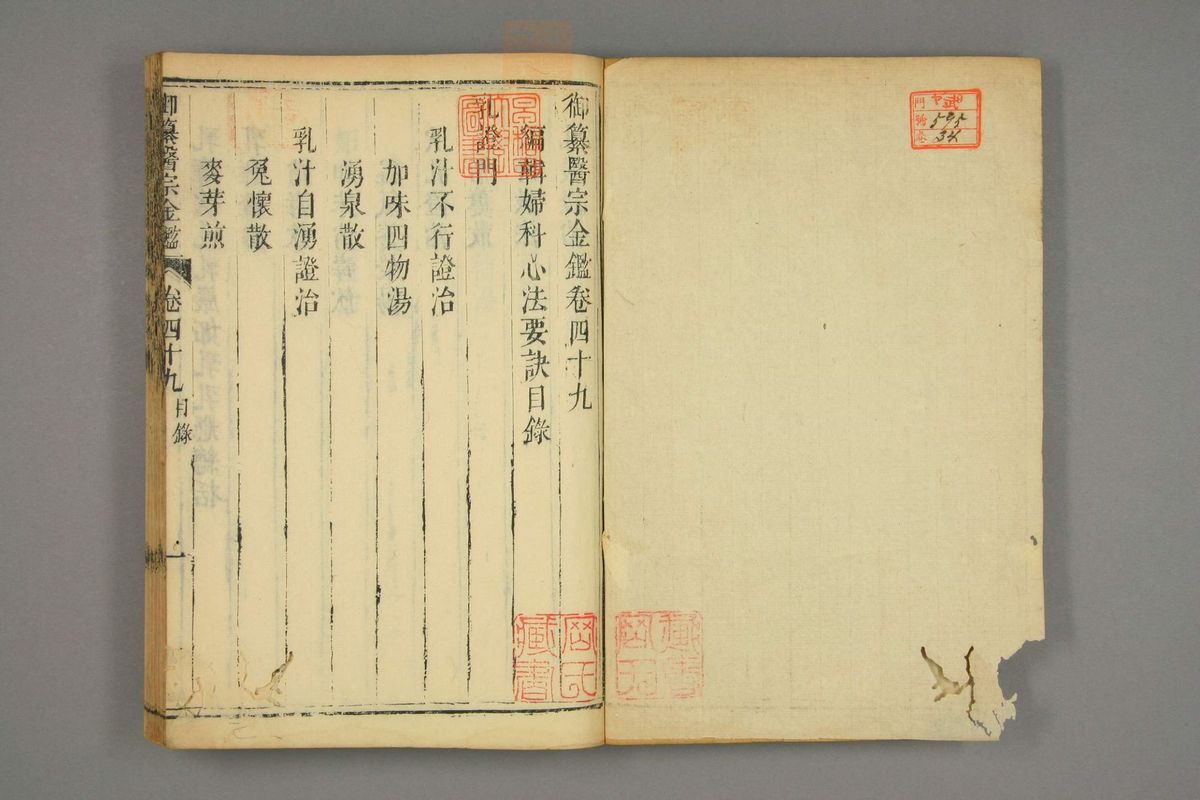 御纂醫宗金鑑卷四十九
編輯婦科心法要訣目錄
乳證門
乳汁不行證治
加味四物湯
湧泉散
乳汁自湧證治
免懷散
麥芽煎
御纂醫宗金鑑
卷四十九
目錄
一
岡氏
藏書
武
門
號
595
34